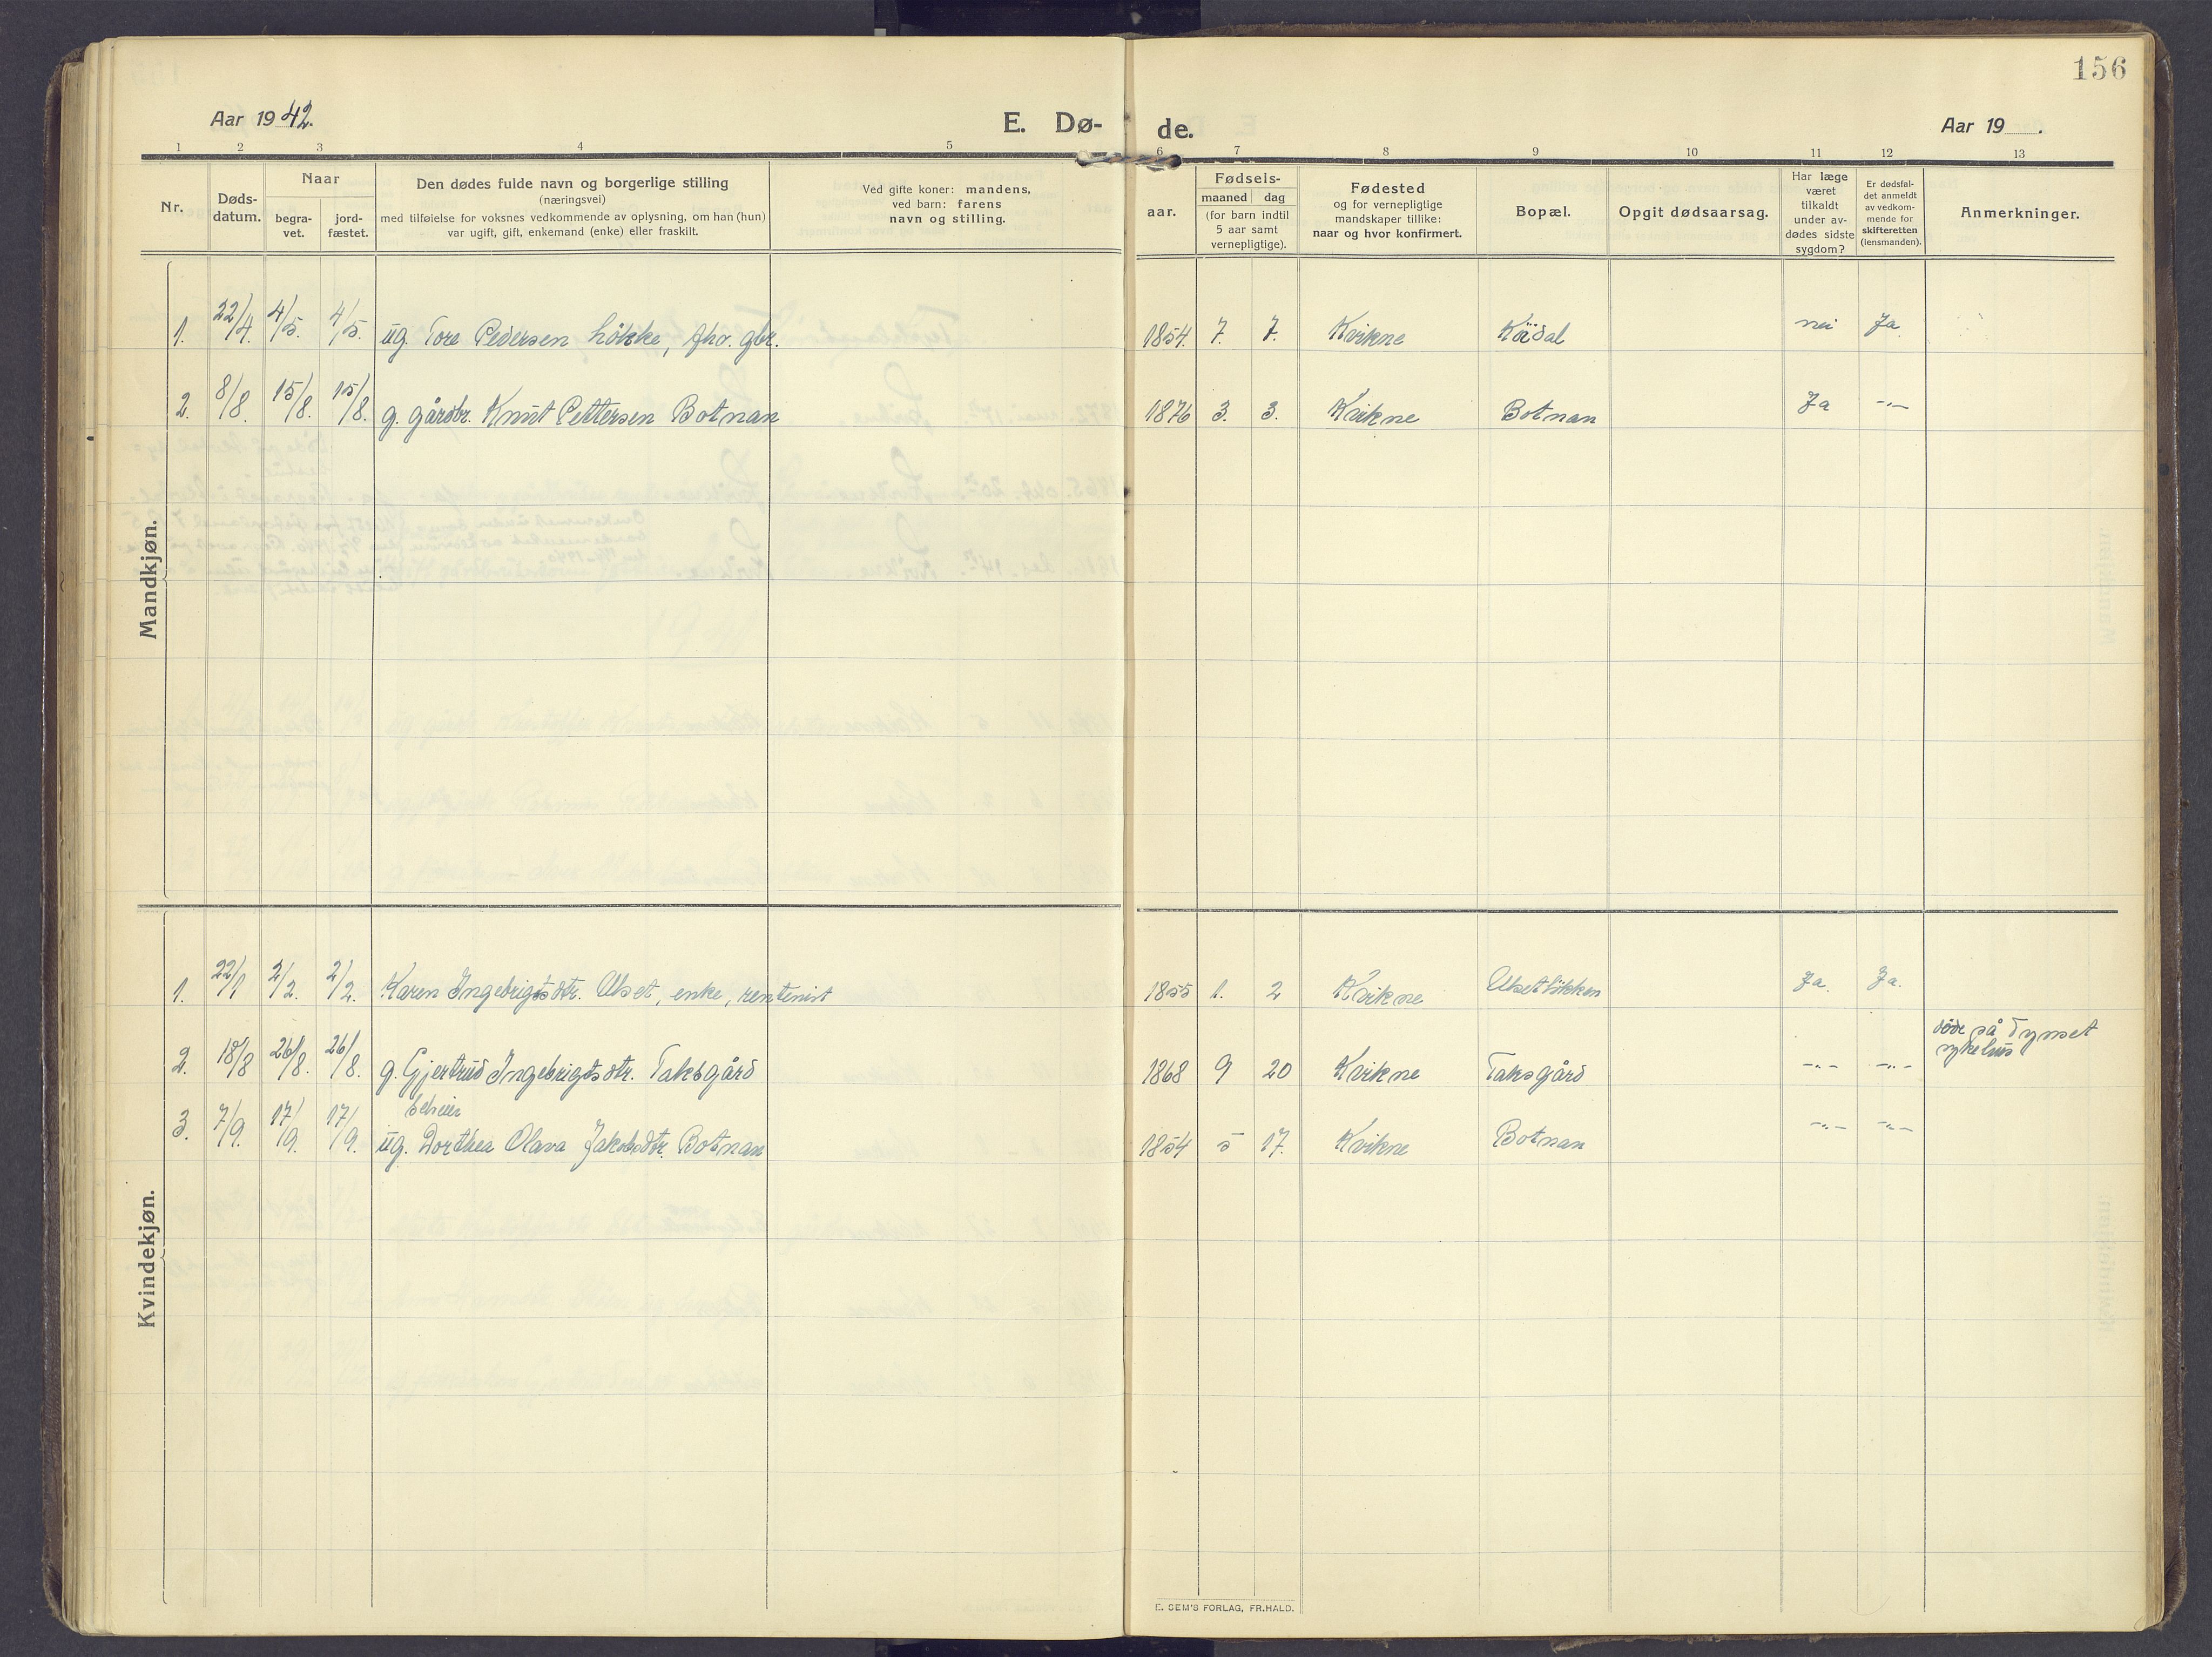 156
Aar 1942.
E. Dø-
de.
Aar 19 .
1 2 3 4 5 6 7 8 9 10 11 12 13
Nr.
Døds-
datum.
Naar
begra-
vet.
jord-
fæstet.
Den dødes fulde navn og borgerlige stilling
(næringsvei)
med tilføielse for voksnes vedkommende av oplysning, om han (hun)
var ugift, gift, enkemand (enke) eller fraskilt.
Ved gifte koner: mandens,
ved barn: farens
navn og stilling.
aar.
Fødsels-
maaned dag
(for barn indtil
5 aar samt
vernepligtige).
Fødested
og for vernepligtige
mandskaper tillike:
naar og hvor konfirmert.
Bopæl.
Opgit dødsaarsag.
Har læge
været
tilkaldt
under av-
dødes sidste
sygdom?
Er dødsfal-
det anmeldt
av vedkom-
mende for
skifteretten
(lensmanden).
Anmerkninger.
Mandkjøn.
1. 22/4. 4/5. 4/5. ug. Tore Pedersen Løkke, fhv. gbr. 1854. 7. 7. Kvikne nei Ja
2. 8/8. 15/8. 15/8. g. gårdbr. Knut Pettersen Botnan 1876 3. 3. Kvikne Botnan Ja -"-
Kvindekjøn.
1. 22/1 2/2. 2/2. Karen Ingebrigtsdtr. Uset, enke, rentenist 1855 1. 2 Kvikne Usetløkken Ja. Ja.
døde på Tynset
sykehus
2. 18/8 26/8. 26/8. g. Gjertrud Ingebrigtsdtr. Taksgård 1868 9 20 Kvikne Taksgård -"- -"-
3. 7/9. 17/9. 17/9. ug. Dorthea Olava Jakobsdtr. Botnan 1854 5 17. Kvikne Botnan -"- -"-
E. SEM'S FORLAG, FR.HALD.